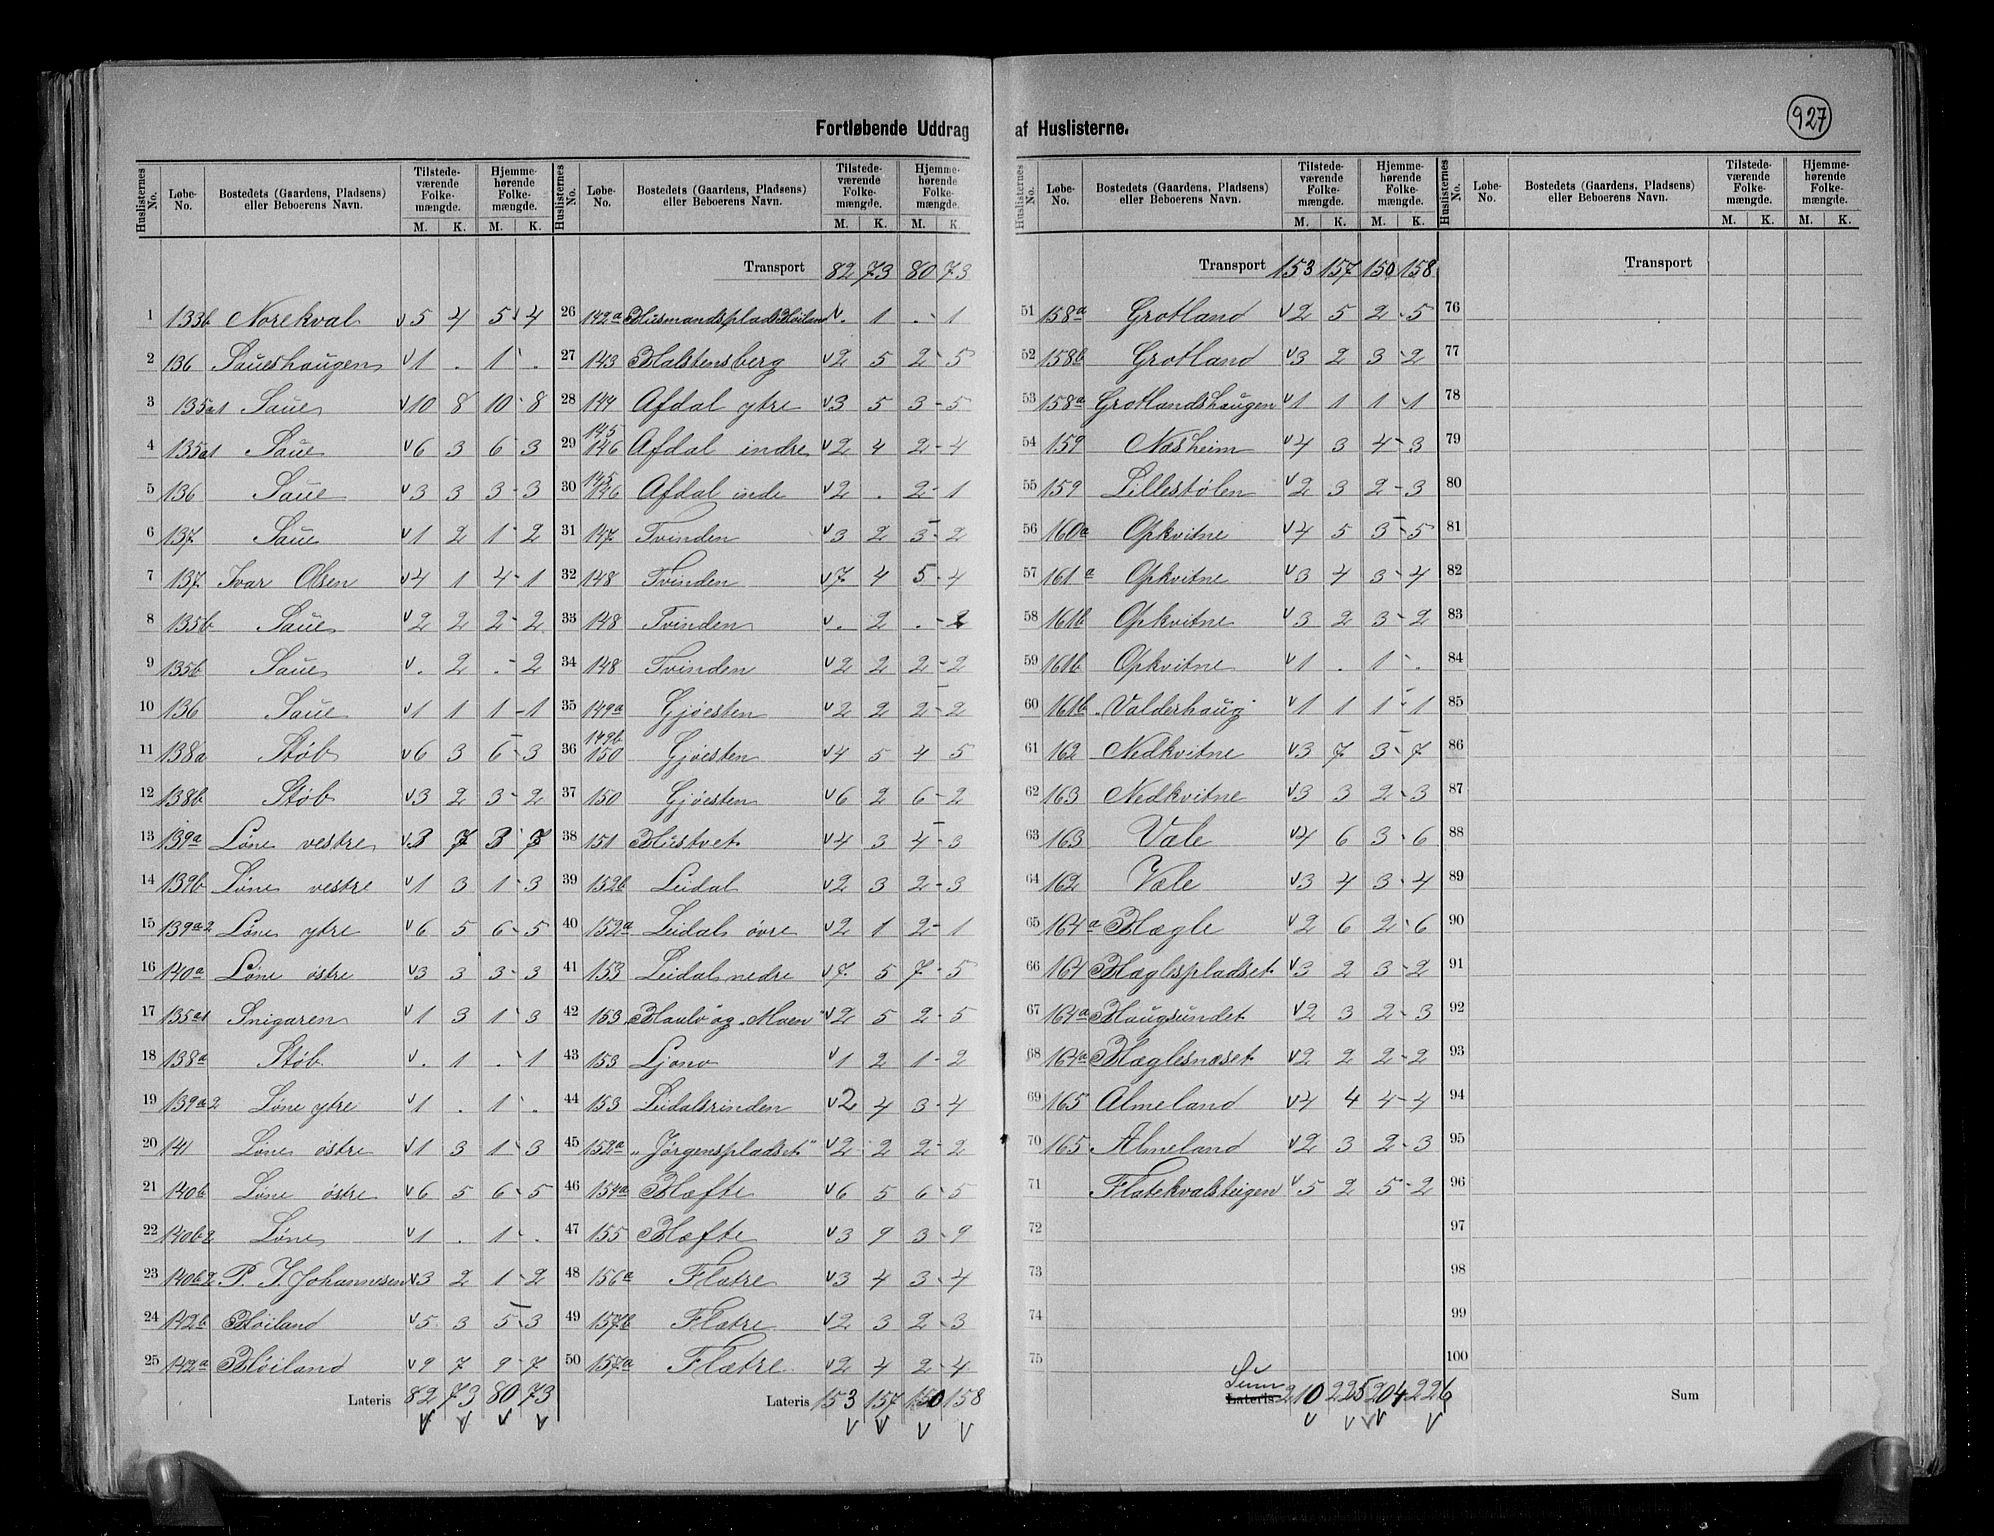 927
Fortløbende Uddrag af Huslisterne.
Huslisternes No. | Løbe-No. | Bostedets (Gaardens, Pladsens) eller Beboerens Navn. | Tilstedeværende Folkemængde. M. K. | Hjemmehørende Folkemængde. M. K.
1 133b Norekval v5 4 5 4
2 136 Saueshaugen v1 . 1 .
3 135a1 Saue v10 8 10 8
4 135a1 Saue v6 3 6 3
5 136 Saue v3 3 3 3
6 137 Saue v1 2 1 2
7 137 Ivar Olsen v4 1 4 1
8 135b Saue v2 2 2 2
9 135b Saue v. 2 . 2
10 136 Saue v1 1 1 1
11 138a Støb v6 3 6 3
12 138b Støb v3 2 3 2
13 139a Løne vestre v3 7 3 7
14 139b Løne vestre v1 3 1 3
15 139a2 Løne ytre v6 5 6 5
16 140a Løne østre v3 3 3 3
17 135a1 Snigaren v1 3 1 3
18 138a Støb v. 1 . 1
19 139a2 Løne ytre v1 . 1 .
20 141 Løne østre v1 3 1 3
21 140b Løne østre v6 5 6 5
22 140b2 Løne v1 . 1 .
23 140b2 P. I. Johannesen v3 2 1 2
24 142b Høiland v5 3 5 3
25 142a Høiland v9 7 9 7
Lateris 82 73 80 73
Huslisternes No. | Løbe-No. | Bostedets (Gaardens, Pladsens) eller Beboerens Navn. | Tilstedeværende Folkemængde. M. K. | Hjemmehørende Folkemængde. M. K.
Transport 82 73 80 73
26 142a Husmandsplads Høiland v. 1 . 1
27 143 Halstensberg v2 5 2 5
28 144 Afdal ytre v3 5 3 5
29 145 146 Afdal indre v2 4 2 4
30 145 146 Afdal inde v2 . 2 1
31 147 Tvinden v3 2 3 2
32 148 Tvinden v7 4 5 4
33 148 Tvinden v. 2 . 2
34 148 Tvinden v2 2 2 2
35 149a Gjøesten v2 2 2 2
36 149b 150 Gjøesten v4 5 4 5
37 150 Gjøesten v6 2 6 2
38 151 Hustvet v4 3 4 3
39 152b Leidal v2 3 2 3
40 152a Leidal øvre v2 1 2 1
41 153 Leidal nedre v7 5 7 5
42 153 og "Moen" v2 5 2 5
43 153 Ljono v1 2 1 2
44 153 Leidalsrinden v2 4 3 4
45 152a "Jørgenspladset" v2 2 2 2
46 154a Hæfte v6 5 6 5
47 155 Hæfte v3 9 3 9
48 156a Flatre v3 4 3 4
49 157b Flatre v2 3 2 3
50 157a Flatre v2 4 2 4
Lateris 153 157 150 158
Huslisternes No. | Løbe-No. | Bostedets (Gaardens, Pladsens) eller Beboerens Navn. | Tilstedeværende Folkemængde. M. K. | Hjemmehørende Folkemængde. M. K.
Transport 153 157 150 158
51 158a Grotland v2 5 2 5
52 158b Grotland v3 2 3 2
53 158a Grotlandshaugen v1 1 1 1
54 159 Næsheim v4 3 4 3
55 159 Lillestølen v2 3 2 3
56 160a Opkvitne v4 5 3 5
57 161a Opkvitne v3 4 3 4
58 161b Opkvitne v3 2 3 2
59 161b Opkvitne v1 . 1 .
60 161b "Valderhaug" v1 1 1 1
61 162 Nedkvitne v3 7 3 7
62 163 Nedkvitne v3 3 2 3
63 163 Væle v4 6 3 6
64 162 Væle v3 4 3 4
65 164a Hægle v2 6 2 6
66 164 Hæglspladset v3 2 3 2
67 164a Haugsundet v2 3 2 3
68 164a Hæglesnæset v2 2 2 2
69 165 Almeland v4 4 4 4
70 165 Almeland v2 3 2 3
71 Flatekvalsteigen v5 2 5 2
72
73
74
75
Sum Lateris 210 225 204 226
Huslisternes No. | Løbe-No. | Bostedets (Gaardens, Pladsens) eller Beboerens Navn. | Tilstedeværende Folkemængde. M. K. | Hjemmehørende Folkemængde. M. K.
Transport
76
77
78
79
80
81
82
83
84
85
86
87
88
89
90
91
92
93
94
95
96
97
98
99
100
Sum